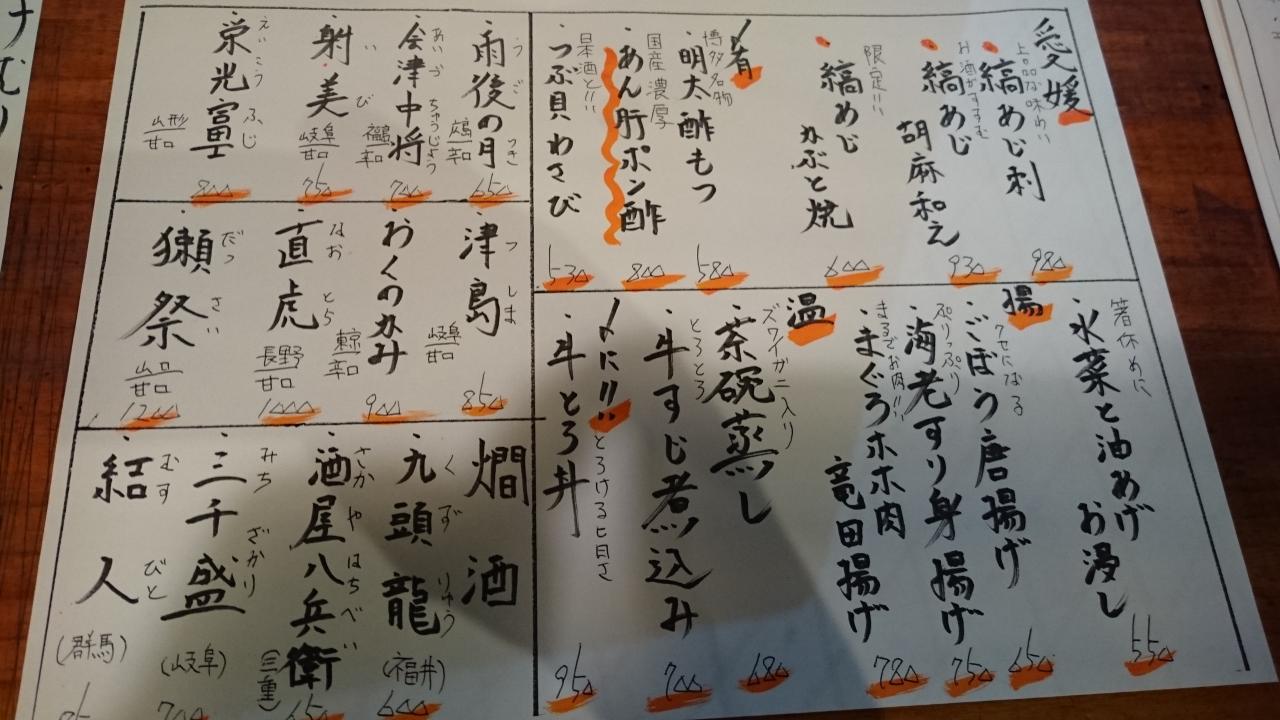 愛媛
上品な味わい
縞あじ刺
980
お酒がすすむ
縞あじ
胡麻和え
930
限定!!
縞あじ
かぶと焼
600
〆肴
博多名物
明太酢もつ
580
国産 濃厚
あん肝ポン酢
800
日本酒と!!
つぶ貝わさび
530
箸休めに
・水菜と油あげ
お浸し
550
揚
クセになる
・ごぼう唐揚げ
650
ぷりっぷり
海老すり身揚げ
750
まるでお肉!!
・まぐろホホ肉
竜田揚げ
780
温
ズワイガニ入り
・茶碗蒸し
680
とろとろ
・牛すじ煮込み
700
〆に!!
とろける旨さ
・牛とろ丼
950
・雨後の月
うごのつき
広島
辛口
650
・会津中将
あいづちゅうじょう
福島
辛口
700
・射美
いび
岐阜
甘口
750
・栄光冨士
えいこうふじ
山形
甘口
800
・津島
つしま
岐阜
甘口
850
・わくのかみ
東京
辛口
900
・直虎
なおとら
長野
甘口
1000
・獺祭
だっさい
山口
甘口
1200
燗酒
・九頭龍
くずりゅう
(福井)
600
・酒屋八兵衛
さかやはちべい
(三重)
650
・三千盛
みちざかり
(岐阜)
700
・結人
むすびと
(群馬)